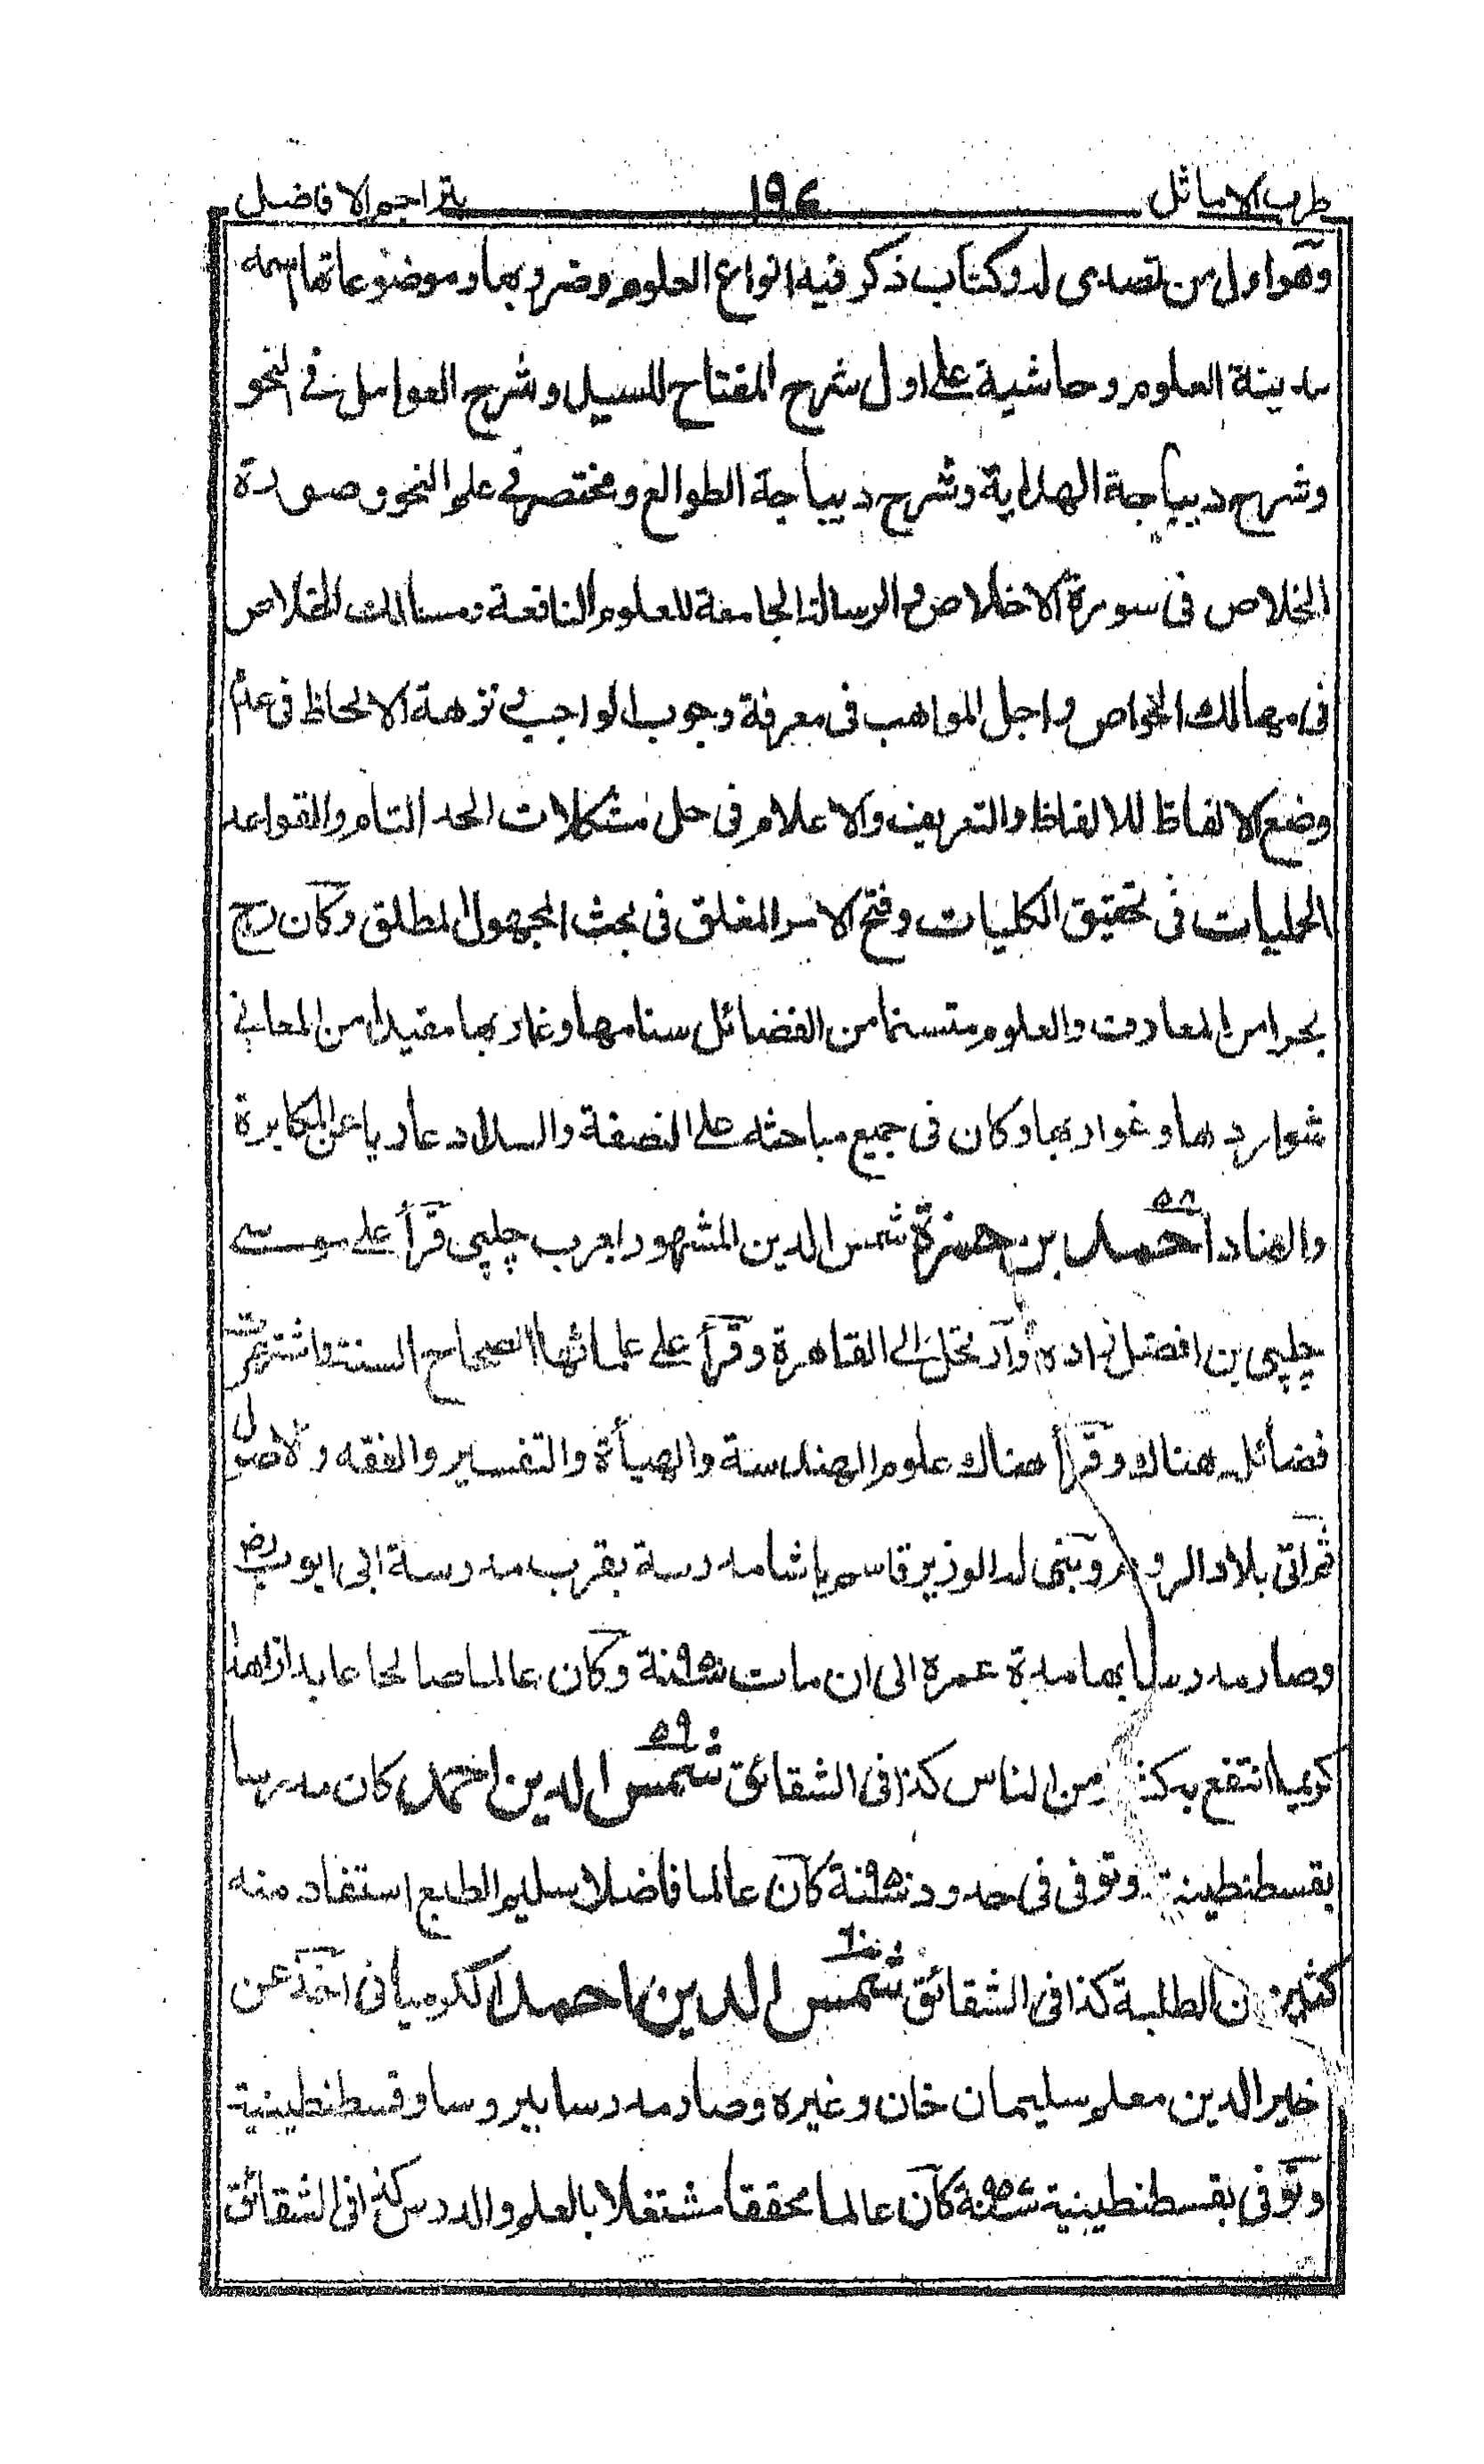 طرب الاماثل ١٩٤ بتراجم الافاضل
وهو اول من تصدى له وكتاب ذكر فيه انواع العلوم وضروبها وموضوعاتها اسمه
مدينة العلوم وحاشية على اول شرح المفتاح للسيد وشرح العوامل فى النحو
وشرح ديباجة الهداية وشرح ديباجة الطوالع ومختصر فى علم النحو وصورة
الخلاص فى سورة الاخلاص والرسالة الجامعة للعلوم النافعة ومسالك الخلاص
فى مهالك الخواص واجل المواهب فى معرفة وجوب الواجب ونزهة الالحاظ فى علم
وضع الالفاظ للالفاظ والتعريف والاعلام فى حل مشكلات الحد التام والقواعد
الحمليات فى تحقيق الكليات وفتح الامر المغلق فى بحث المجهول المطلق وكان رح
بحرا من المعارف والعلوم متسنما من الفضائل سنامها وغاربها مقيدا من المعانى
شواردها وغواربها وكان فى جميع مباحثه على النصفة والسداد عاريا عن المكابرة
والعناد ٥٨ احمد بن حمزة شمس الدين المشهور بعرب چلپى قرأ على موسى
چلپى بن افضل زاده وارتحل الى القاهرة وقرأ على علمائها الصحاح الستة واشتهرت
فضائله هناك وقرأ هناك علوم الهندسة والهيأة والتفسير والفقه والاصول
ثم اتى بلاد الروم وبنى له الوزير قاسم پاشا مدرسة بقرب مدرسة ابى ايوب رض
وصار مدرسا بها مدة عمره الى ان مات سنة ٩٥٠ وكان عالما صالحا عابدا زاهدا
كريما انتفع به كثير من الناس كذا فى الشقائق ٥٩ شمس الدين احمد كان مدرسا
بقسطنطينية وتوفى فى حدود سنة ٩٥٠ كان عالما فاضلا سليم الطبع استفاد منه
كثير من الطلبة كذا فى الشقائق ٦٠ شمس الدين احمد الكرميانى اخذ عن
خير الدين معلم سليمان خان وغيره وصار مدرسا ببروسا وقسطنطينية
وتوفى بقسطنطينية سنة كان عالما محققا مشتغلا بالعلم والدرس كذا فى الشقائق